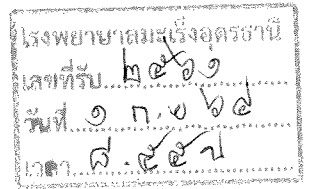 โรงพยาบาลมะเร็งอุดรธานี
เลขที่รับ ๒๕๖๑
วันที่ ๑ ก.ย ๖๔
เวลา ๘.๕๕ น